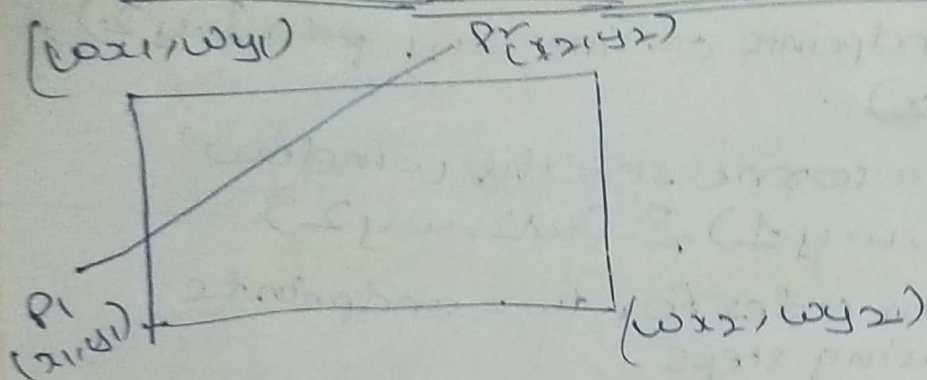 (wx1, wy1)
P2(x2, y2)
P1
(x1, y1)
(wx2, wy2)